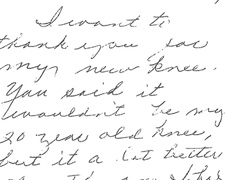 I want to
thank you for
my new knee.
You said it
wouldn't be my
20 year old knee,
but it a lot better